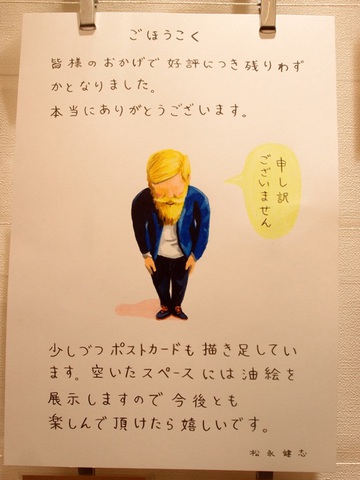 ごほうこく
皆様のおかげで好評につき残りわず
かとなりました。
本当にありがとうございます。
申し訳
ございません
少しづつポストカードも描き足してい
ます。空いたスペースには油絵を
展示しますので今後とも
楽しんで頂けたら嬉しいです。
松永健志